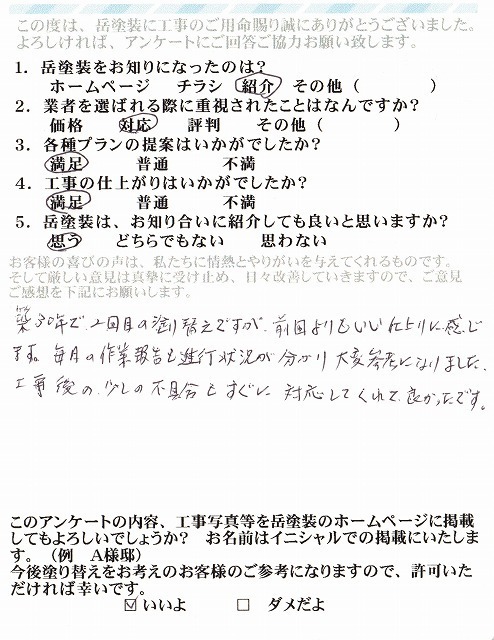 この度は、岳塗装に工事のご用命賜り誠にありがとうございました。
よろしければ、アンケートにご回答ご協力お願い致します。
1．岳塗装をお知りになったのは？
ホームページ　チラシ　紹介　その他（　　　　）
2．業者を選ばれる際に重視されたことはなんですか？
価格　対応　評判　その他（　　　　）
3．各種プランの提案はいかがでしたか？
満足　普通　不満
4．工事の仕上がりはいかがでしたか？
満足　普通　不満
5．岳塗装は、お知り合いに紹介しても良いと思いますか？
思う　どちらでもない　思わない
お客様の喜びの声は、私たちに情熱とやりがいを与えてくれるものです。
そして厳しい意見は真摯に受け止め、日々改善していきますので、ご意見
ご感想を下記にお願いします。
築30年で、2回目の塗り替えですが、前回よりもいい仕上りに感じ
ます。毎日の作業報告も進行状況が分かり大変参考になりました、
工事後の、少しの不具合もすぐに対応してくれて、良かったです。
このアンケートの内容、工事写真等を岳塗装のホームページに掲載
してもよろしいでしょうか？　お名前はイニシャルでの掲載にいたしま
す。（例　A様邸）
今後塗り替えをお考えのお客様のご参考になりますので、許可いた
だければ幸いです。
☑ いいよ　□ ダメだよ